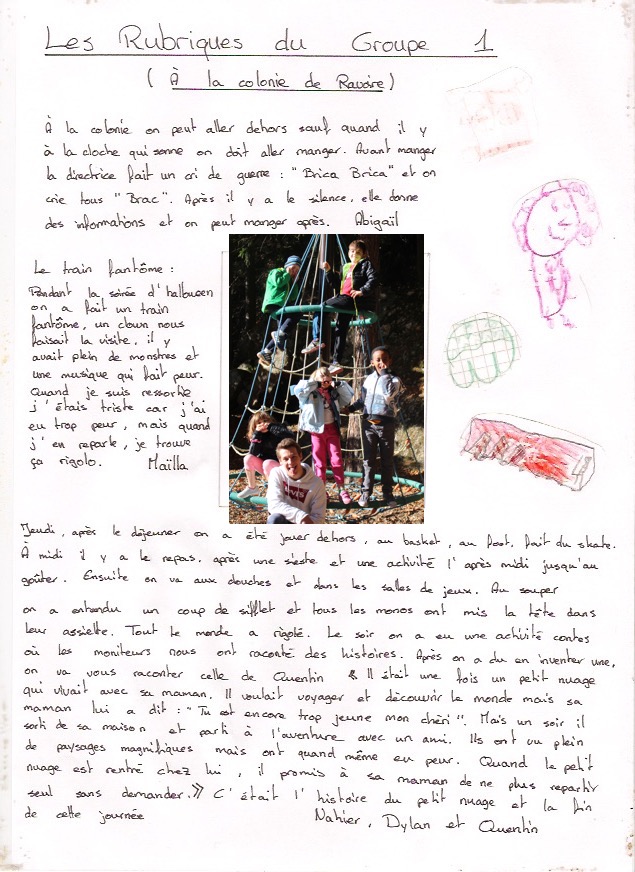 Les Rubriques du Groupe 1
( À la colonie de Ravoire )
À la colonie on peut aller dehors sauf quand il y
à la cloche qui sonne on doit aller manger. Avant manger
la directrice fait un cri de guerre : "Brica Brica" et on
crie tous "Brac". Après il y a le silence, elle donne
des informations et on peut manger après. Abigaïl
Le train fantôme :
Pendant la soirée d'halloween
on a fait un train
fantôme, un clown nous
faisait la visite, il y
avait plein de monstres et
une musique qui fait peur.
Quand je suis ressortie
j'étais triste car j'ai
eu trop peur, mais quand
j'en reparle, je trouve
ça rigolo. Maïlla
LEVI'S
Jeudi, après le déjeuner on a été jouer dehors, au basket, au foot, fait du skate.
À midi il y a le repas, après une sieste et une activité l'après midi jusqu'au
goûter. Ensuite on va aux douches et dans les salles de jeux. Au souper
on a entendu un coup de sifflet et tous les monos ont mis la tête dans
leur assiette. Tout le monde a rigolé. Le soir on a eu une activité contes
où les moniteurs nous ont raconté des histoires. Après on a du en inventer une,
on va vous raconter celle de Quentin « Il était une fois un petit nuage
qui vivait avec sa maman. Il voulait voyager et découvrir le monde mais sa
maman lui a dit : "Tu est encore trop jeune mon chéri". Mais un soir il
sorti de sa maison et parti à l'aventure avec un ami. Ils ont vu plein
de paysages magnifiques mais ont quand même eu peur. Quand le petit
nuage est rentré chez lui, il promis à sa maman de ne plus repartir
seul sans demander.» C'était l'histoire du petit nuage et la fin
de cette journée Nahier, Dylan et Quentin